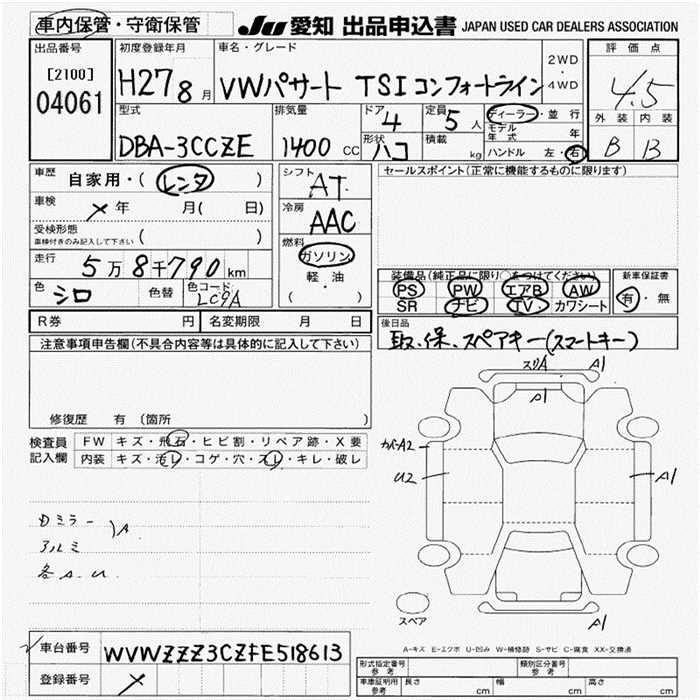 車内保管・守衛保管
JU 愛知 出品申込書 JAPAN USED CAR DEALERS ASSOCIATION
出品番号
[2100]
04061
初度登録年月
H27 8月
車名・グレード
VWパサート TSIコンフォートライン
2WD
・
4WD
評価点
4.5
外装 内装
B B
型式
DBA-3CCZE
排気量
1400 CC
ドア 4
形状 ハコ
定員 5人
積載 kg
ディーラー・並行
モデル年式 年
ハンドル 左・右
車歴 自家用・(レンタ )
車検 メ 年 月( 日)
受検形態
車検付きのみ記入して下さい ( )
走行 5万8千790km
色 シロ 色替 色コード LC9A
シフト AT
冷房 AAC
燃料
ガソリン
軽・油
( )
セールスポイント(正常に機能するものに限ります)
装備品(純正品に限り○をつけてください)
PS PW エアB AW
SR ナビ TV カワシート
新車保証書
有・無
R券 円 名変期限 月 日
後日品
取、保、スペアキー(スマートキー)
注意事項申告欄(不具合内容等は具体的に記入して下さい)
修復歴 有 (箇所
検査員記入欄
FW キズ・飛石・ヒビ割・リペア跡・X要
内装 キズ・汚レ・コゲ・穴・スレ・キレ・破レ
スリA A1
A1
カバーA2
U2
A1
A1
ミラー )A
アルミ
各A.U
スペア
A-キズ E-エクボ U-凹み W-補修跡 S-サビ C-腐食 XX-交換済
車台番号 WVWZZZ3CZFE518613
登録番号 メ
形式指定番号 参考
類別区分番号 参考
車庫証明用 参考 長さ cm 幅 cm 高さ cm